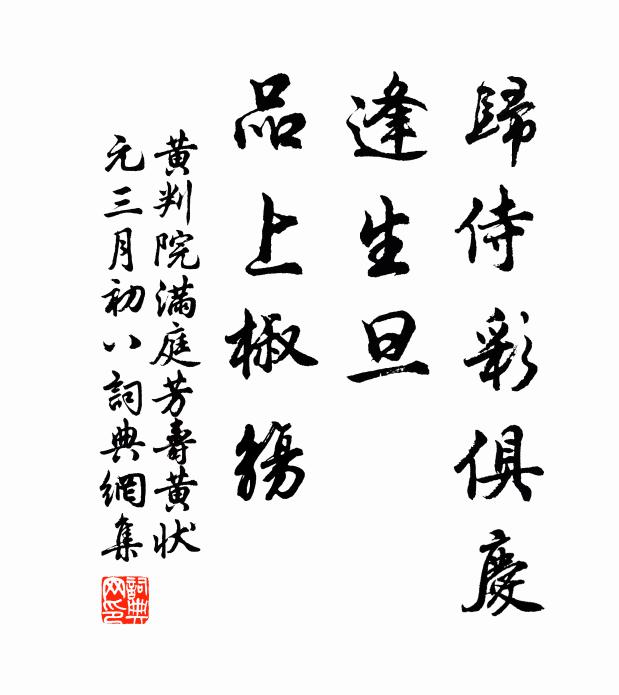 歸侍彩俱慶
逢生旦
品上椒觴
黄判院滿庭芳壽黄状
元三月初八詞典網集
詞典
网印